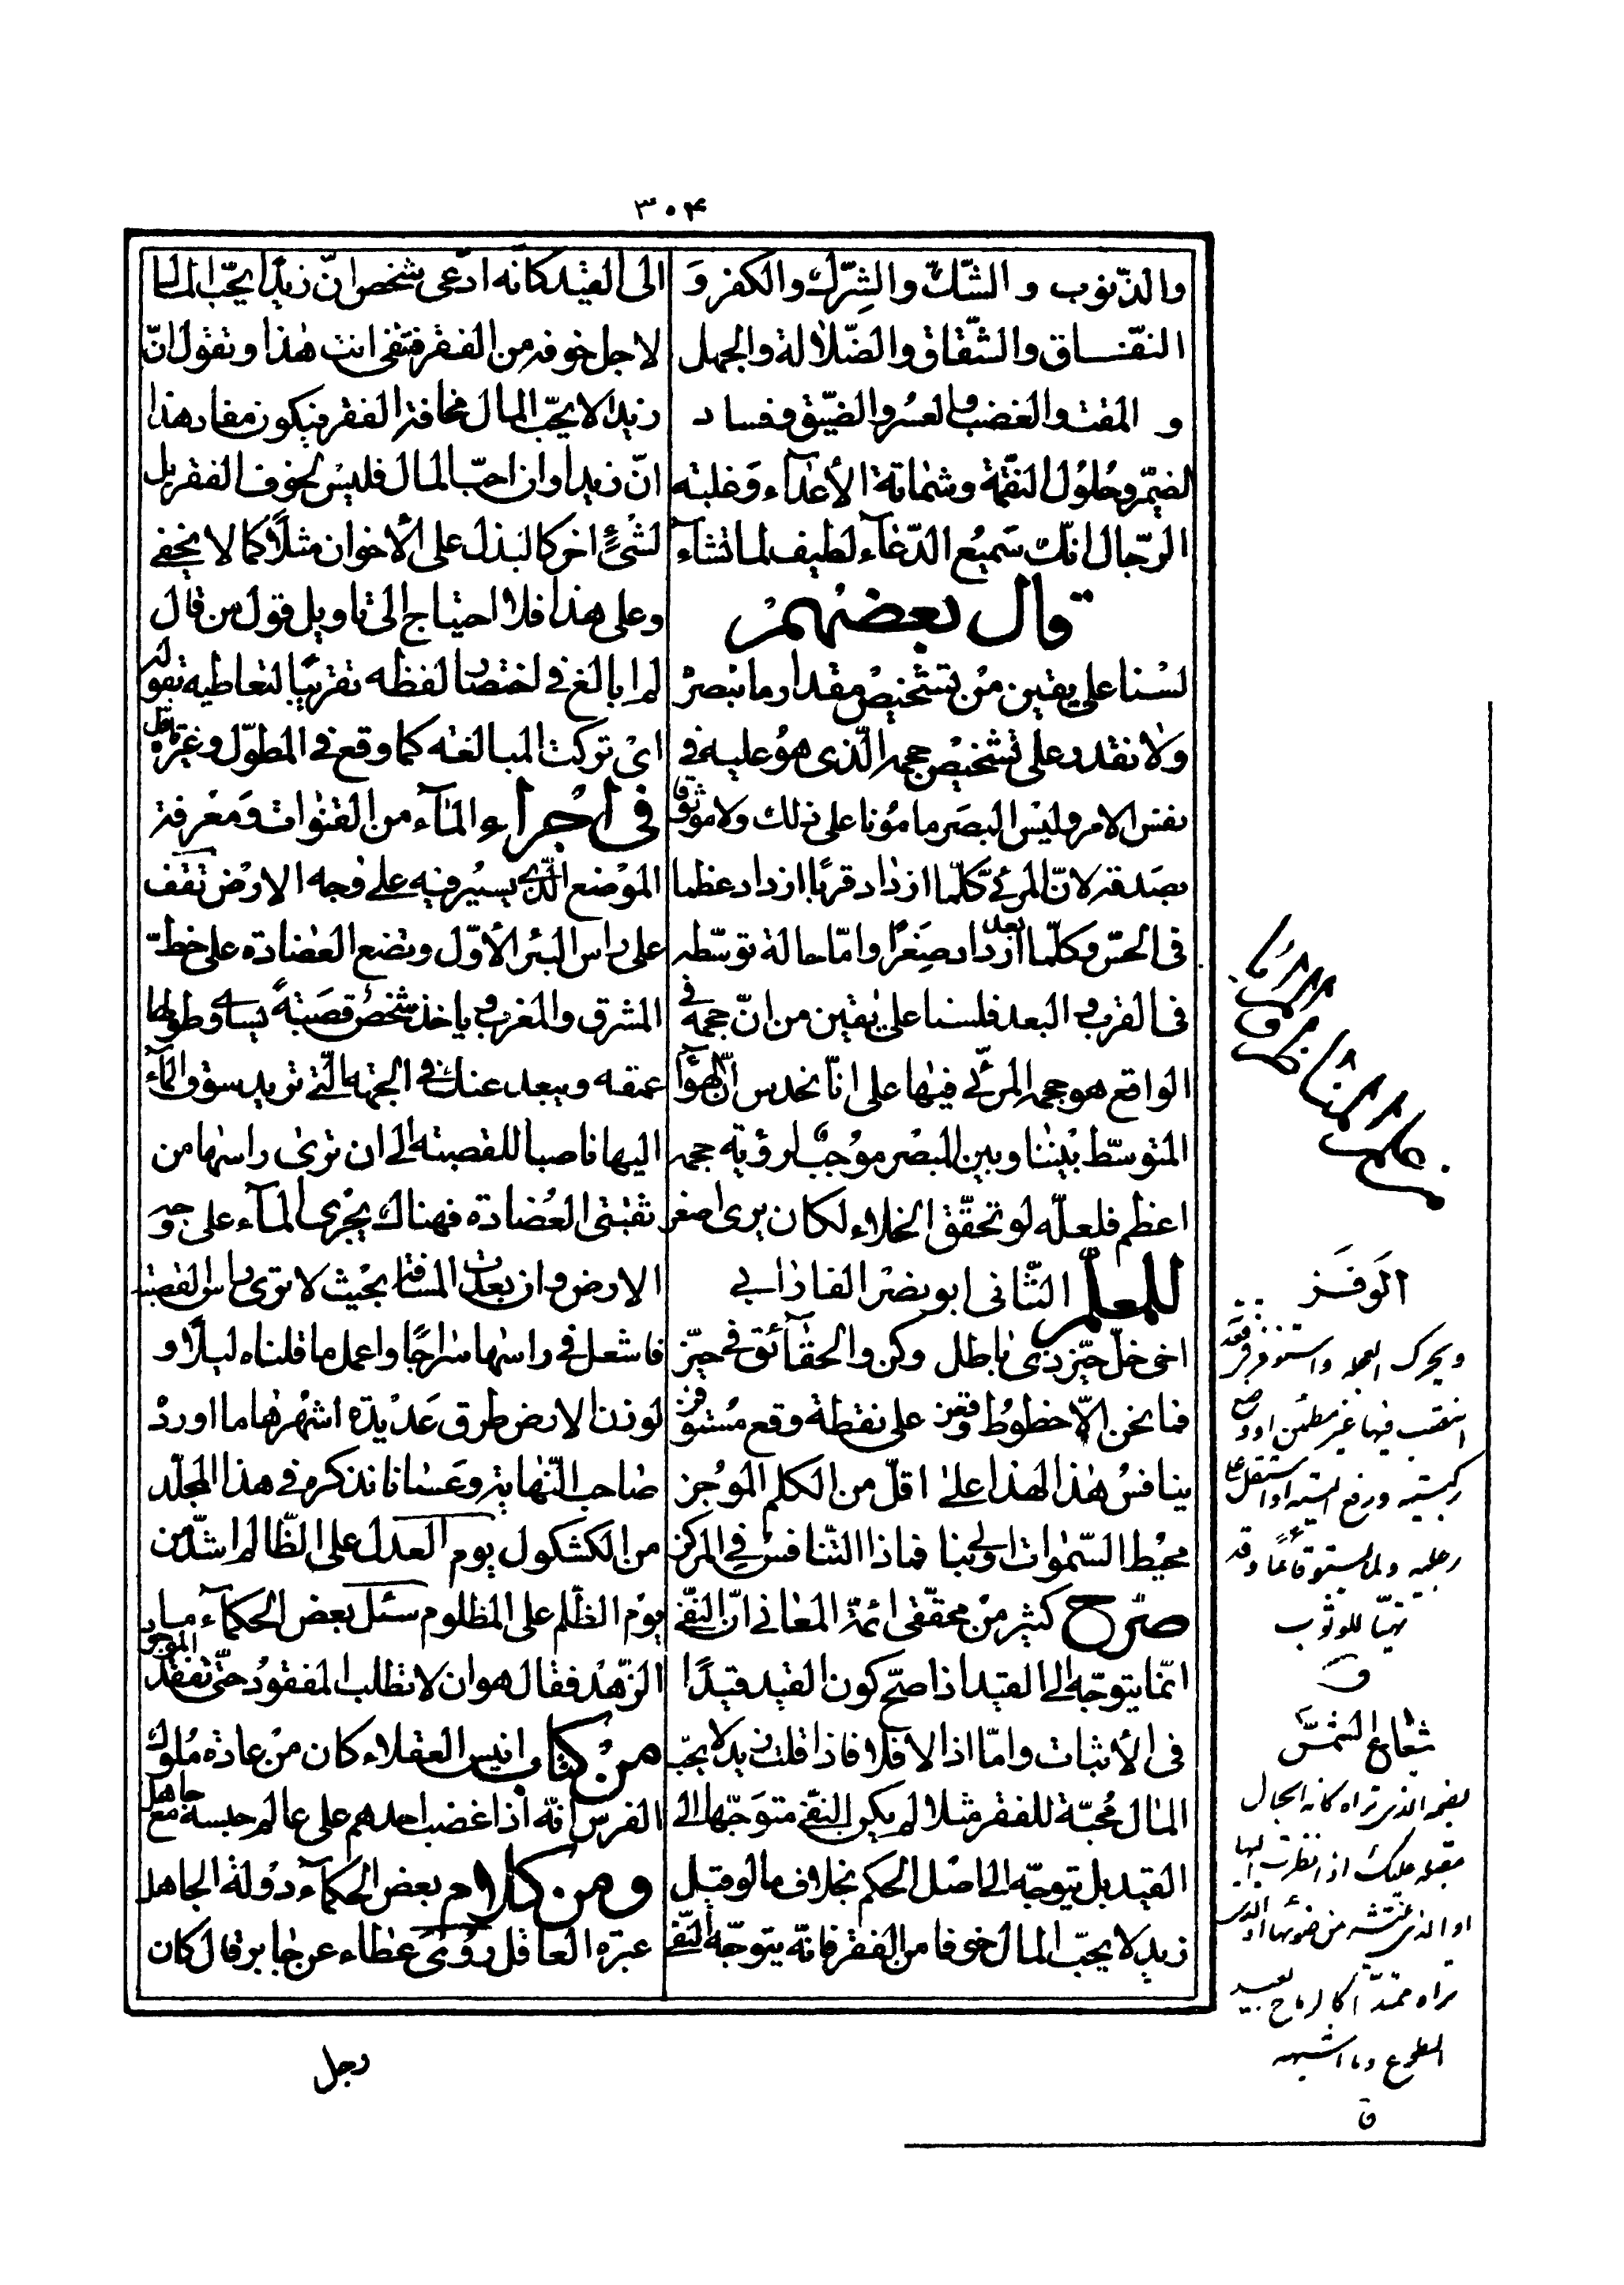 ۳۰۴
والذّنوب والشّكّ والشّرك والكفر و
النّفاق والشّقاق والضّلالة والجهل
و المقت والغضب والعسر والضّيق وفساد
الضّمير وحلول النّقمة وشماتة الأعدآء وغلبة
الرّجال انّك سميع الدّعآء لطيف لما تشآء
قال بعضهم
لسنا على يقين من تشخيص مقدار ما نبصر
ولا نقدر على تشخيص حجمه الّذى هو عليه فى
نفس الامر وليس البصر مامونا على ذلك ولا موثوقا
بصدقه لانّ المرئى كلّما ازداد قربا ازداد عظما
فى الحسّ وكلّما ازداد بعدا صغرا وامّا حالة توسّطه
فى القرب والبعد فلسنا على يقين من انّ حجمه فى
الواقع هو حجمه المرئى فيها على انّا نحدس انّ الهوآء
المتوسّط بيننا وبين المبصر موجب لرؤية حجمه
اعظم فلعلّه لو تحقّق الخلاء لكان يرى اصغر
للمعلم الثّانى ابو نصر الفارابى
اخى خلّ حيّز ذى باطل وكن والحقآئق فى حيّز
فما نحن الّا خطوط وقعن على نقطة وقع مستوفز
ينافس هذا لهذا على اقلّ من الكلم الموجز
محيط السّموات اولى بنا فماذا التّنافس فى المركز
صرّح كثير من محقّقى ائمّة المعانى انّ النّفى
انّما يتوجّه الى القيد اذا صحّ كون القيد قيدًا
فى الأثبات وامّا اذا لا فلا فاذا قلت زيد لا يحبّ
المال محبّة للفقر مثلا لم يكن النّفى متوجّها الى
القيد بل يتوجّه الى اصل الحكم بخلاف ما لو قيل
زيد لا يحبّ المال خوفا من الفقر فانّه يتوجّه النّفى
الى القيد كانّه ادّعى شخص انّ زيدا يحبّ المال
لاجل خوفه من الفقر فتنفى انت هذا وتقول انّ
زيدا لا يحبّ المال مخافة الفقر فيكون مفاد هذا
انّ زيدا وان احبّ المال فليس لخوف الفقر بل
لشئ اخر كالبذل على الأخوان مثلًا كما لا يخفى
وعلى هذا فلا احتياج الى تاويل قول من قال
لم ابالغ فى اختصار لفظه تقريبًا لتعاطيه بقوله
اى تركت المبالغة كما وقع فى المطوّل وغيره
فى اجراء المآء من القنوات ومعرفة
الموضع الّذى يسير فيه على وجه الارض تقف
على راس البئر الأوّل وتضع العضادة على خطّ
المشرق والمغرب وياخذ شخص قصبةً يساوى طولها
عمقه ويبعد عنك فى الجهة الّتى تريد سوق المآء
اليها ناصبا للقصبة الى ان ترى راسها من
ثقبتى العضادة فهناك يجرى المآء على وجه
الارض وان بعدت المسافة بحيث لا ترى راس القصبة
فاشعل فى راسها سراجًا واعمل ما قلناه ليلًا و
لوزن الارض طرق عديدة اشهرها ما اورد
صاحب النّهاية وعسانا نذكره فى هذا المجلّد
من الكشكول يوم العدل على الظّالم اشدّ من
يوم الظّلم على المظلوم سئل بعض الحكمآء ما
الزّهد فقال هو ان لا تطلب المفقود حتّى تفقد الموجود
من كتاب انيس العقلاء كان من عادة ملوك
الفرس انّه اذا غضب احدهم على عالم حبسه مع جاهل
ومن كلام بعض الحكمآء دولة الجاهل
عبرة العاقل روى عطاء عن جابر قال كان
رجل
علم المناظر والمرايا
الوفز
ويحرك العجلة واستوفز فى قعدته
انتصب فيها غير مطمئن او وضع
ركبتيه ورفع اليتيه او استقل على
رجليه ولما يستو قائمًا وقد
تهيأ للوثوب
ق
شعاع الشمس
بضمه الذى تراه كانه الحبال
مقبلة عليك اذا نظرت اليها
او الذى ينتشر من ضوئها او الذى
تراه ممتدًا كالرماح بعيد
الطلوع وما اشبهه
ق